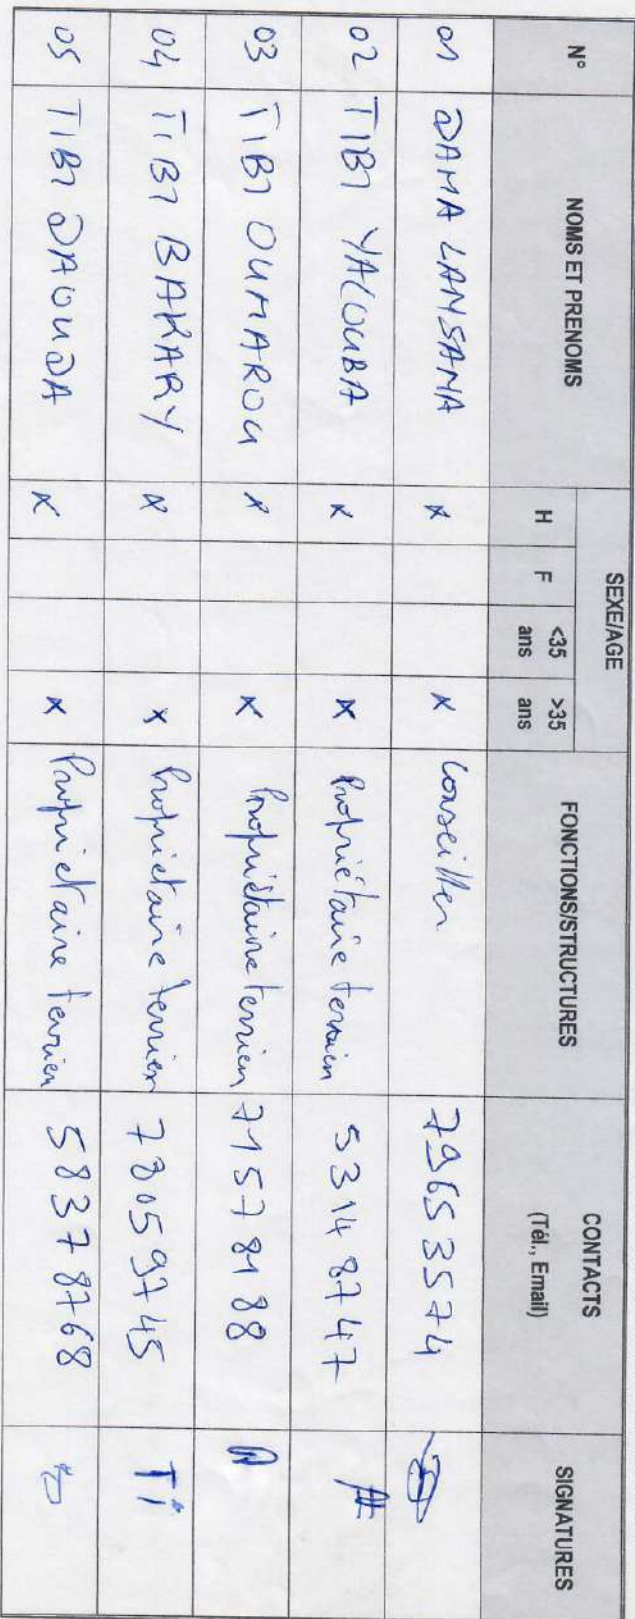 N° NOMS ET PRENOMS SEXE/AGE FONCTIONS/STRUCTURES CONTACTS (Tél., Email) SIGNATURES
H F <35 ans >35 ans
01 DAMA LANSANA x x Conseiller 79653574
02 TIBI YACOUBA x x Propriétaire terrien 53148747
03 TIBI OUMAROU x x Propriétaire terrien 71578188
04 TIBI BAKARY x x Propriétaire terrien 78059745 Ti
05 TIBI DAOUDA x x Propriétaire terrien 58378768